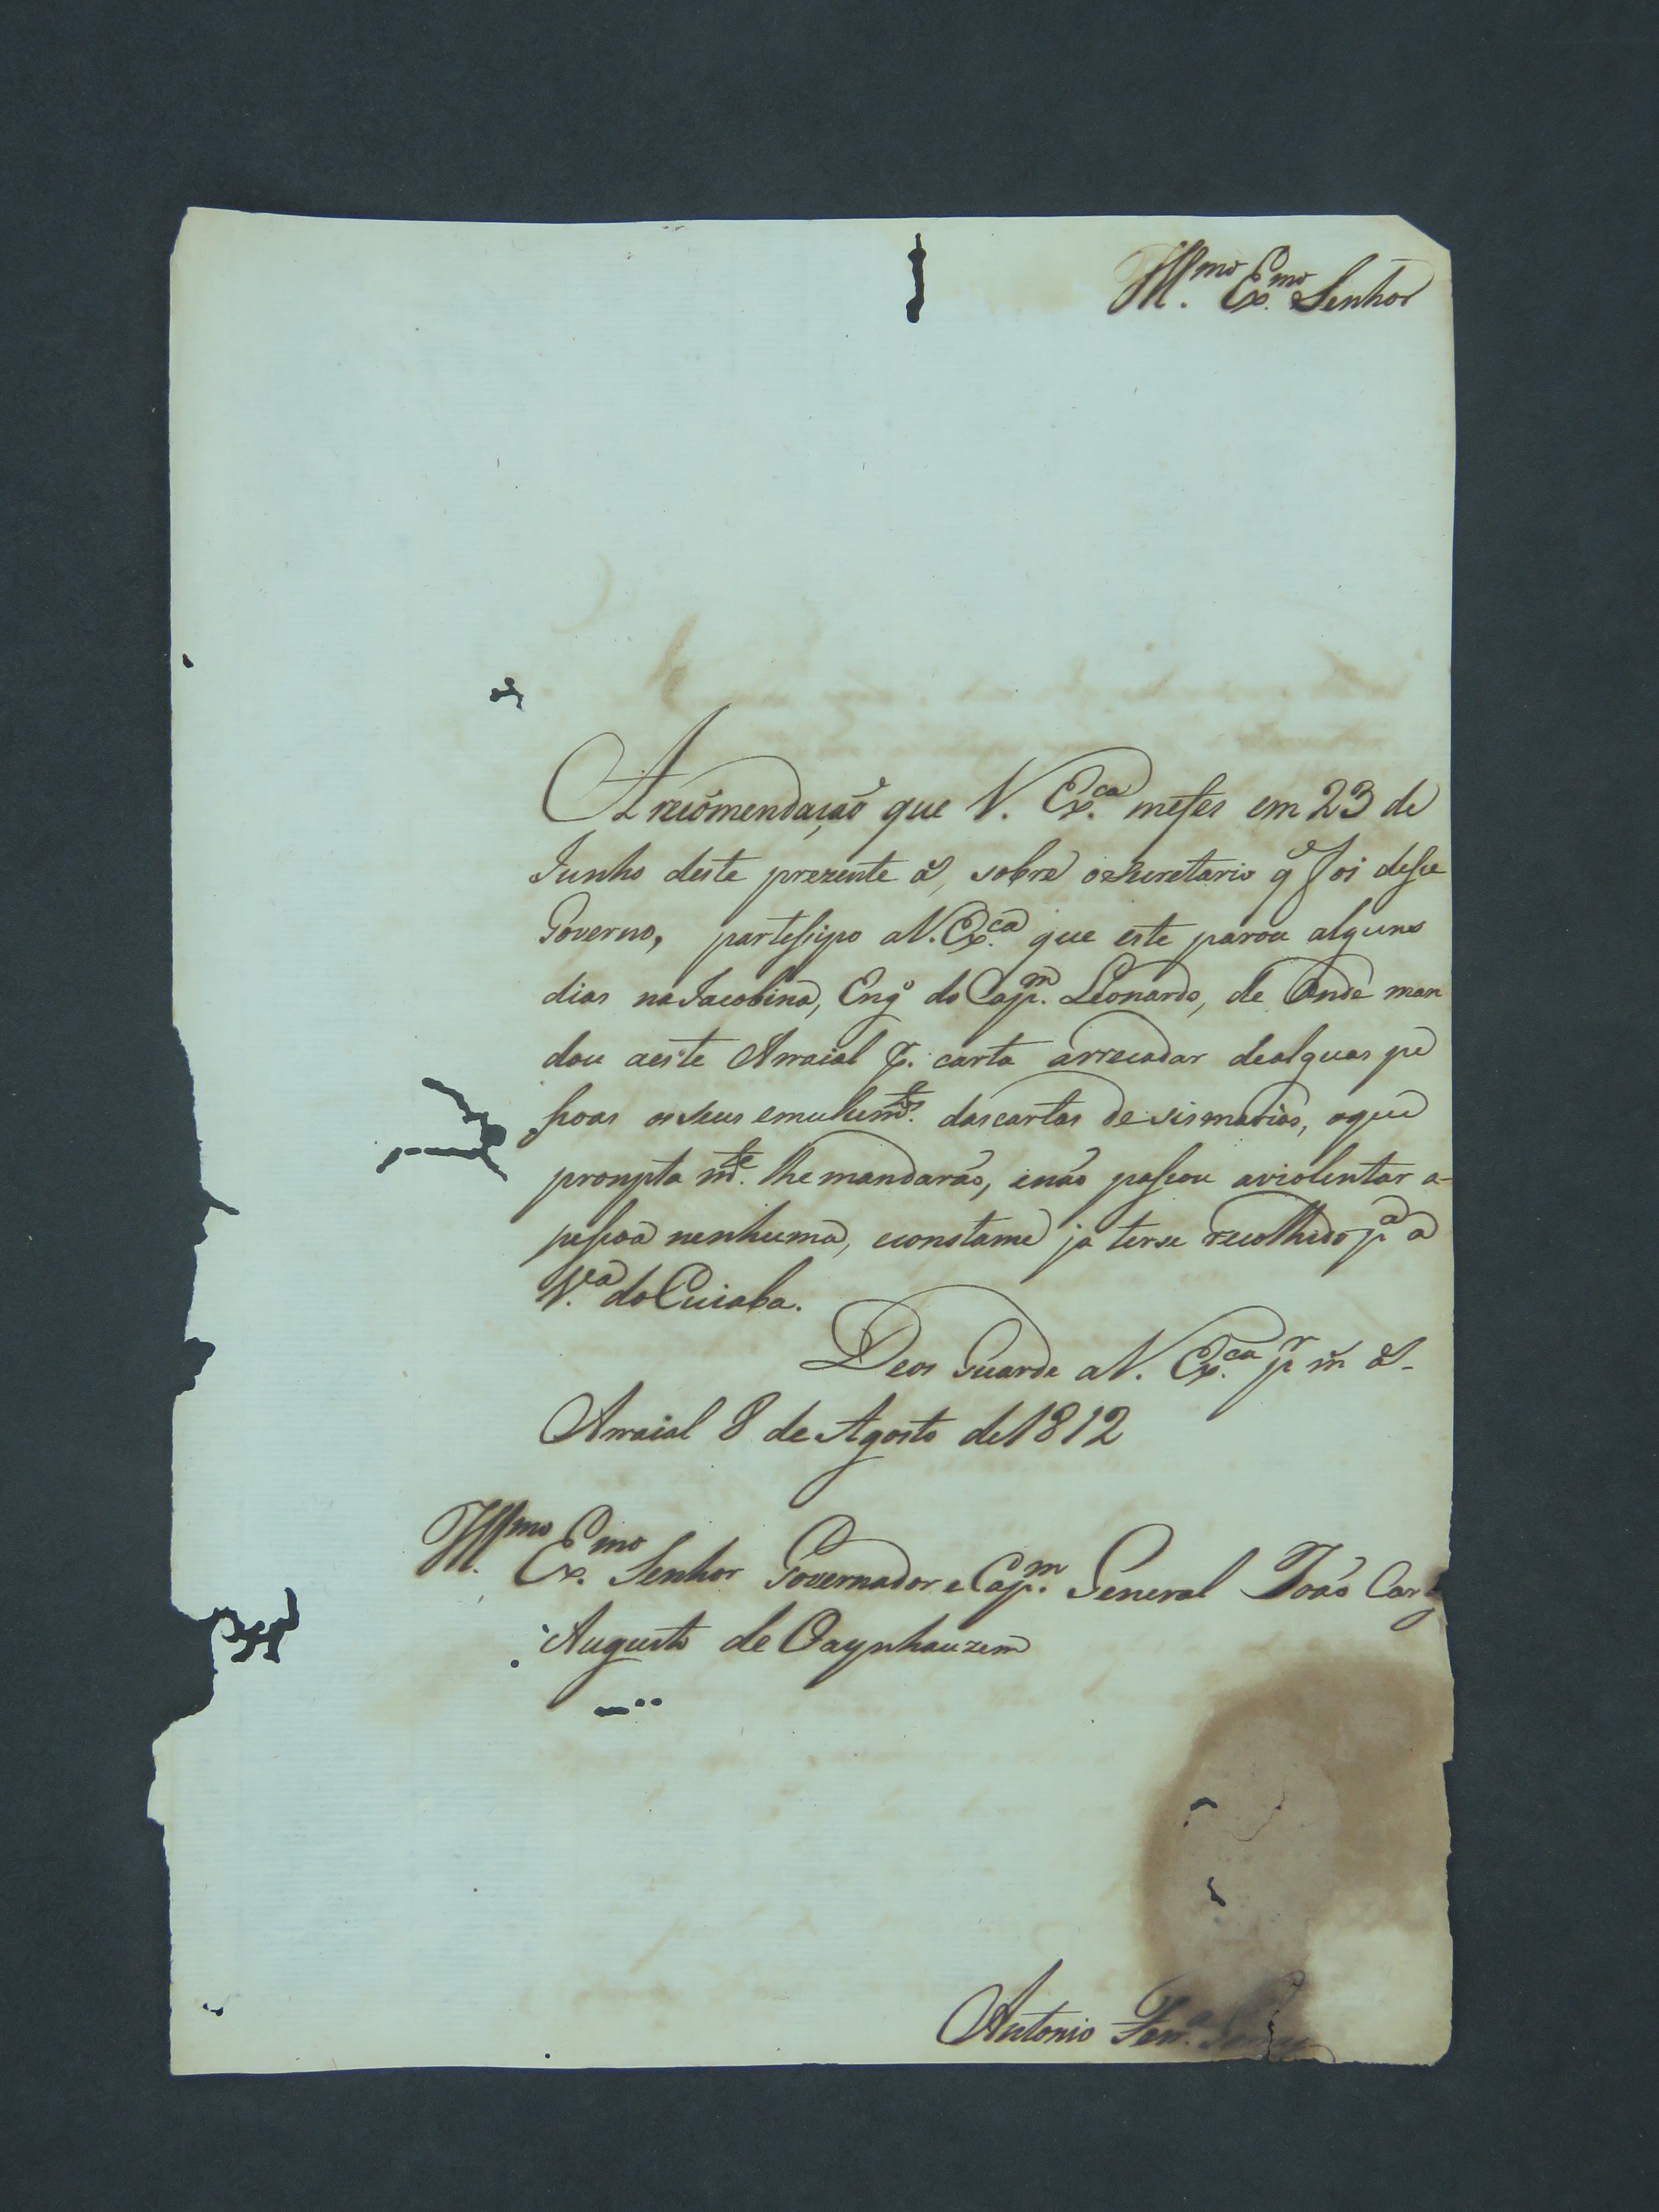 Illmo. Exmo. Senhor
A recõmendação que V. Exca. mefes em 23 de
Junho deste prezente ã, sobre osecretario q̃ foi desse
Governo, partessipo aV. Exca. que este parou alguns
dias na Jacobina, Engo do Capm. Leonardo, de Onde man
dou aeste Arraial p. carta arrecadar dealguas pe
ssoas osseus emulumtos. dascartas de sismarias, oque
prompta mte. lhe mandarão, enão passou aviolentar a-
pessoa nenhuma, econstame ja terse recolhido pa a
Va. do Cuiaba.
Deos Guarde aV. Exca. pr m̃ ãs.
Arraial 8 de Agosto de 1812
Illmo. Exmo. Senhor Governador e Capm. General João Carl
Augusto de Oaynhauzem
Antonio Ferra.